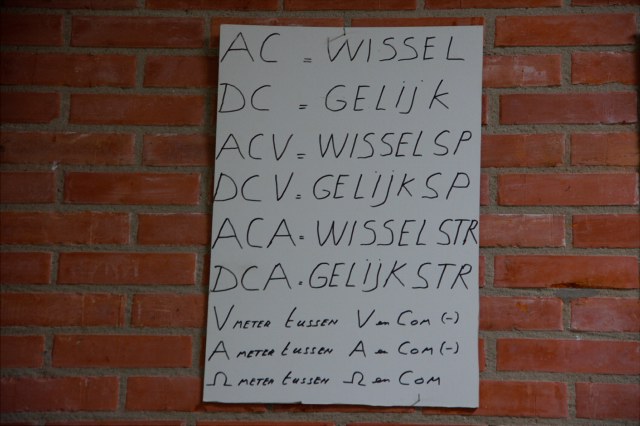 AC = WISSEL
DC = GELIJK
ACV = WISSELSP
DCV = GELIJKSP
ACA = WISSELSTR
DCA = GELIJKSTR
V METER tussen V en Com (-)
A METER tussen A en Com (-)
Ω METER tussen Ω en Com